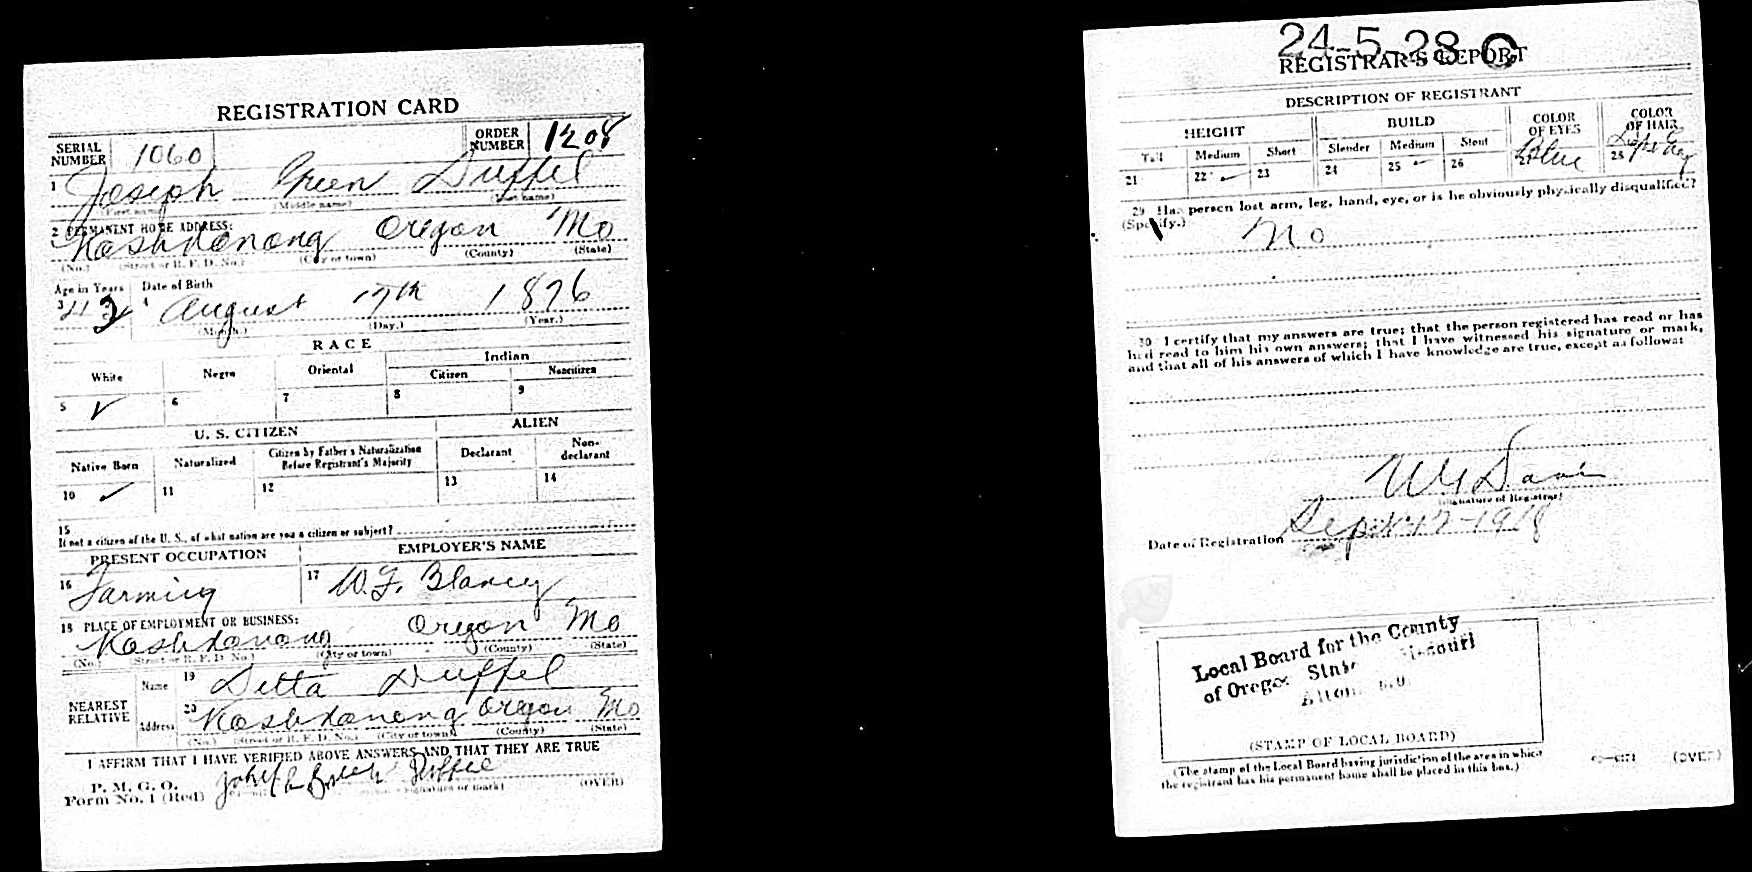 REGISTRATION CARD
SERIAL NUMBER 1060 ORDER NUMBER 1208
1 Joseph Green Duffel
(First name) (Middle name) (Last name)
2 PERMANENT HOME ADDRESS:
Koshkonong Oregon Mo
(No.) (Street or R. F. D. No.) (City or town) (County) (State)
Age in Years Date of Birth
3 42 4 August 17th 1876
(Month.) (Day.) (Year.)
RACE
White Negro Oriental Indian
Citizen Noncitizen
5 ✓ 6 7 8 9
U. S. CITIZEN ALIEN
Native Born Naturalized Citizen by Father's Naturalization Before Registrant's Majority Declarant Non-declarant
10 ✓ 11 12 13 14
15
If not a citizen of the U. S., of what nation are you a citizen or subject?
PRESENT OCCUPATION EMPLOYER'S NAME
16 Farming 17 W. F. Blaney
18 PLACE OF EMPLOYMENT OR BUSINESS:
Koshkonong Oregon Mo
(No.) (Street or R. F. D. No.) (City or town) (County) (State)
NEAREST RELATIVE
Name 19 Duffel
Address 20 Koshkonong Oregon Mo
(No.) (Street or R. F. D. No.) (City or town) (County) (State)
I AFFIRM THAT I HAVE VERIFIED ABOVE ANSWERS AND THAT THEY ARE TRUE
P. M. G. O.
Form No. 1 (Red) Duffel (Signature or mark) (OVER)
24-5-28 C
REGISTRAR'S REPORT
DESCRIPTION OF REGISTRANT
HEIGHT BUILD COLOR OF EYES COLOR OF HAIR
Tall Medium Short Slender Medium Stout
21 22 ✓ 23 24 25 ✓ 26 27 Blue 28
29 Has person lost arm, leg, hand, eye, or is he obviously physically disqualified?
(Specify.) No
30 I certify that my answers are true; that the person registered has read or has
had read to him his own answers; that I have witnessed his signature or mark,
and that all of his answers of which I have knowledge are true, except as follows:
(Signature of Registrar)
Date of Registration Sept 12-1918
Local Board for the County
of Oregon State Missouri
Alton, Mo.
(STAMP OF LOCAL BOARD)
(The stamp of the Local Board having jurisdiction of the area in which
the registrant has his permanent home shall be placed in this box.)
(OVER)